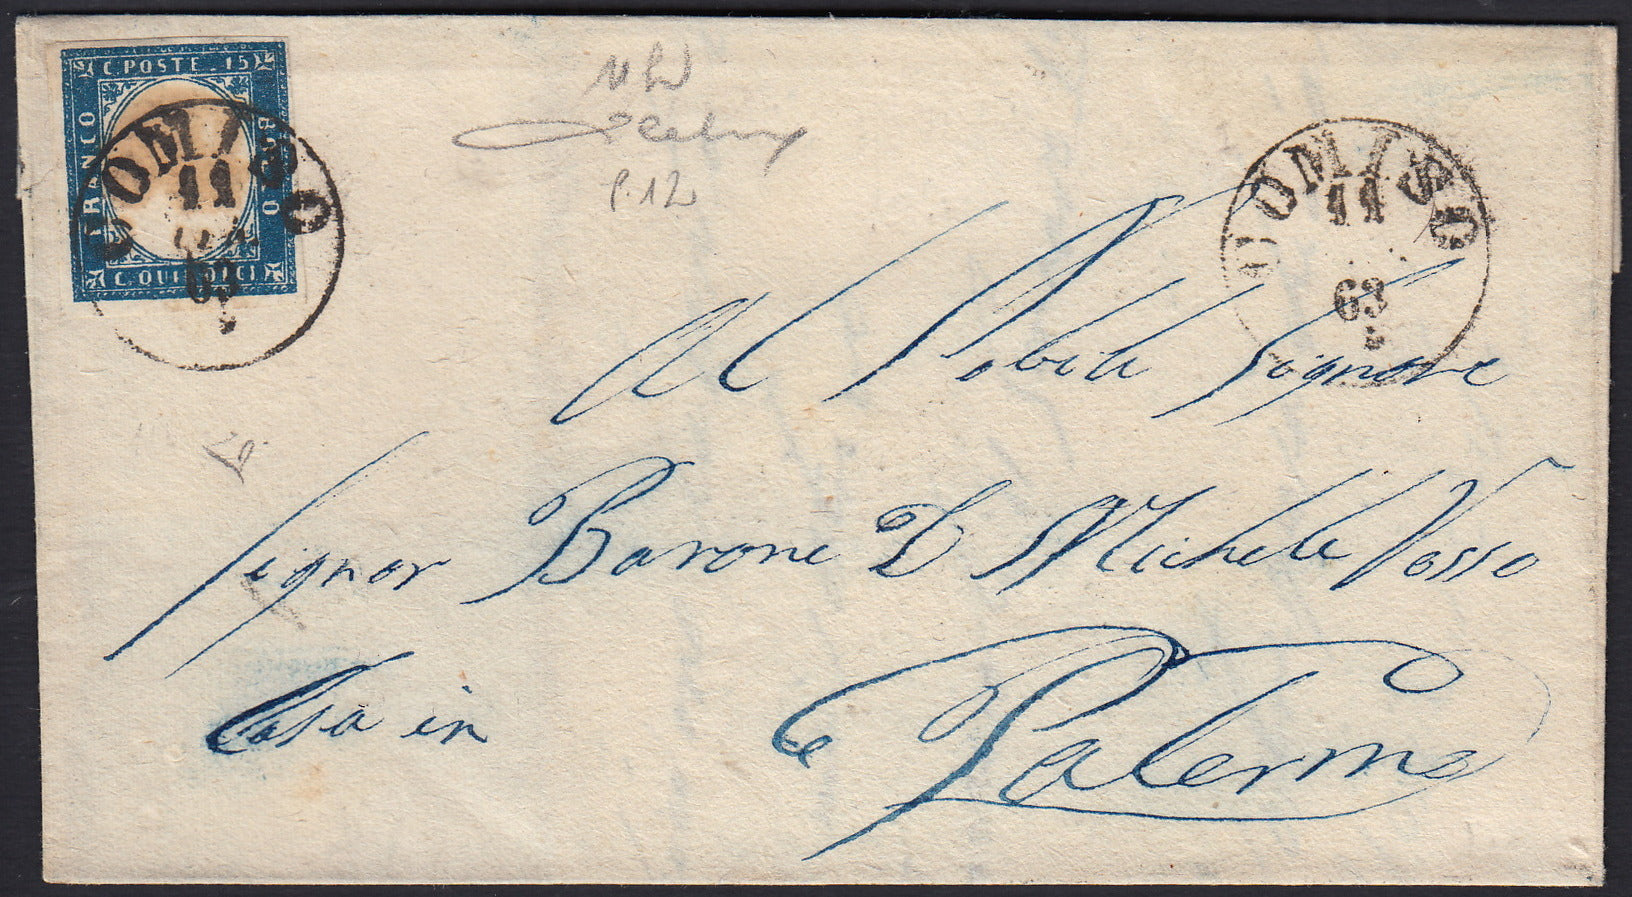 C. POSTE. 15
FRANCO
BOLLO
C. QUINDICI
COMISO
11
63
COMISO
11
63
P. 12
Al Nobile Signore
Signor Barone D Michele Vosso
Casa in
Palermo